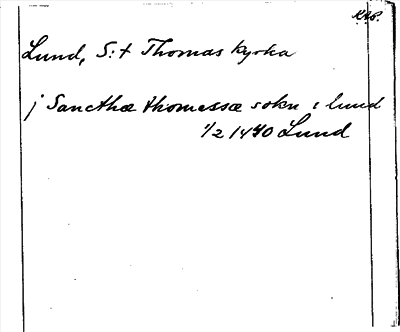 KAP.
Lund, S:t Thomas kyrka
j Sancthæ thomessæ sokn i lund
1/2 1470 Lund